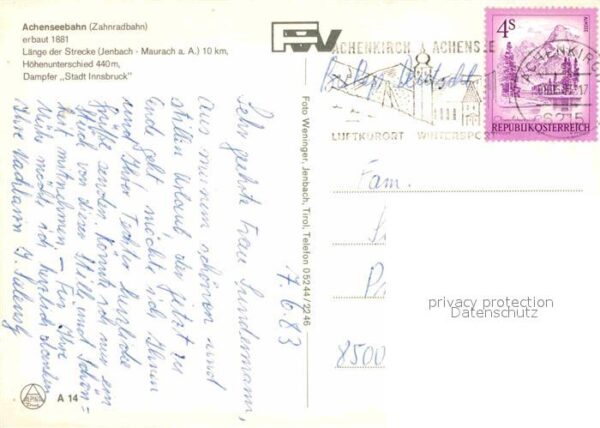 Achenseebahn (Zahnradbahn)
erbaut 1881
Länge der Strecke (Jenbach - Maurach a. A.) 10 km,
Höhenunterschied 440 m,
Dampfer „Stadt Innsbruck"
7.6.83
Sehr geehrte Frau Sundermann,
aus meinem schönen und
stillen Urlaub, der jetzt zu
Ende geht, möchte ich Ihnen
und Ihrer Tochter herzliche
Grüße senden. Könnte ich nur ein
Stück von dieser Stille und Schön=
heit mitnehmen. – Für Ihre
Mühe möchte ich herzlich danken
Ihre Nachbarin
A 14
Foto Weninger, Jenbach, Tirol, Telefon 05244/2246
ACHENKIRCH A ACHENSEE
LUFTKURORT WINTERSPO
ACHENKIRCH
6215
4s
REPUBLIK ÖSTERREICH
Fam.
8500
privacy protection
Datenschutz